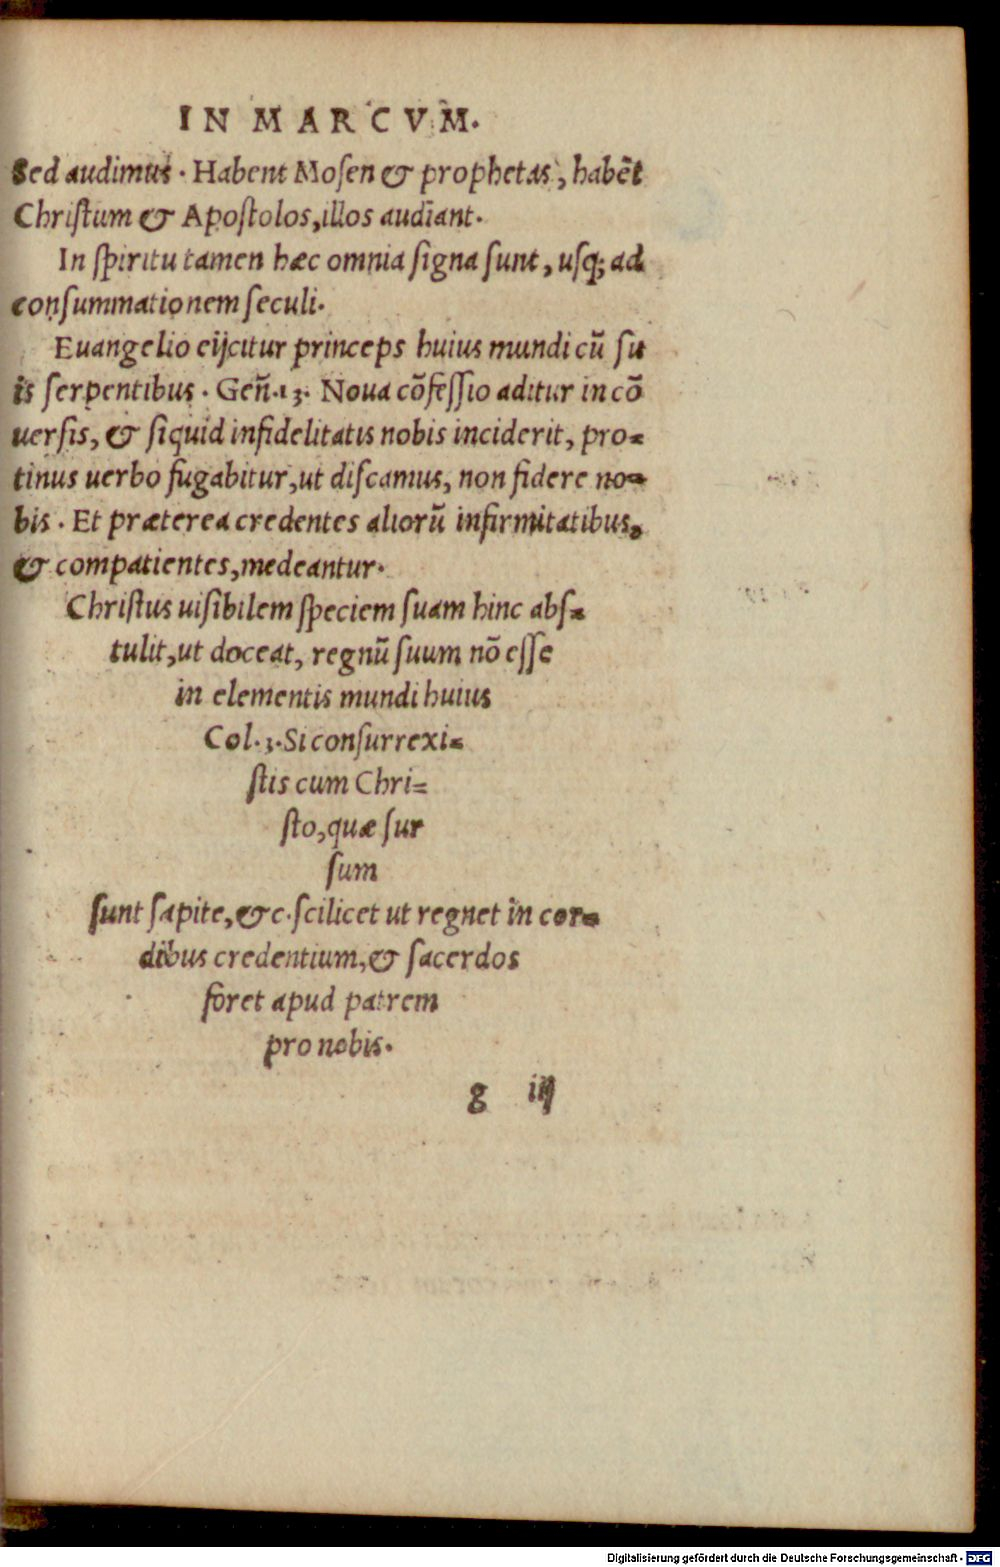 IN MARCVM.
Sed audimus. Habent Mosen & prophetas, habēt
Christum & Apostolos, illos audiant.
In spiritu tamen hæc omnia signa sunt, usq; ad
consummationem seculi.
Euangelio eijcitur princeps huius mundi cū su
is serpentibus. Geñ.13. Noua cōfessio aditur in cō
uersis, & siquid infidelitatis nobis inciderit, pro=
tinus uerbo fugabitur, ut discamus, non fidere no=
bis. Et præterea credentes aliorū infirmitatibus,
& compatientes, medeantur.
Christus uisibilem speciem suam hinc abs=
tulit, ut doceat, regnū suum nō esse
in elementis mundi huius
Col.3. Si consurrexi=
stis cum Chri=
sto, quæ sur
sum
sunt sapite, &c. scilicet ut regnet in cor=
dibus credentium, & sacerdos
foret apud patrem
pro nobis.
g iij
Digitalisierung gefördert durch die Deutsche Forschungsgemeinschaft - DFG